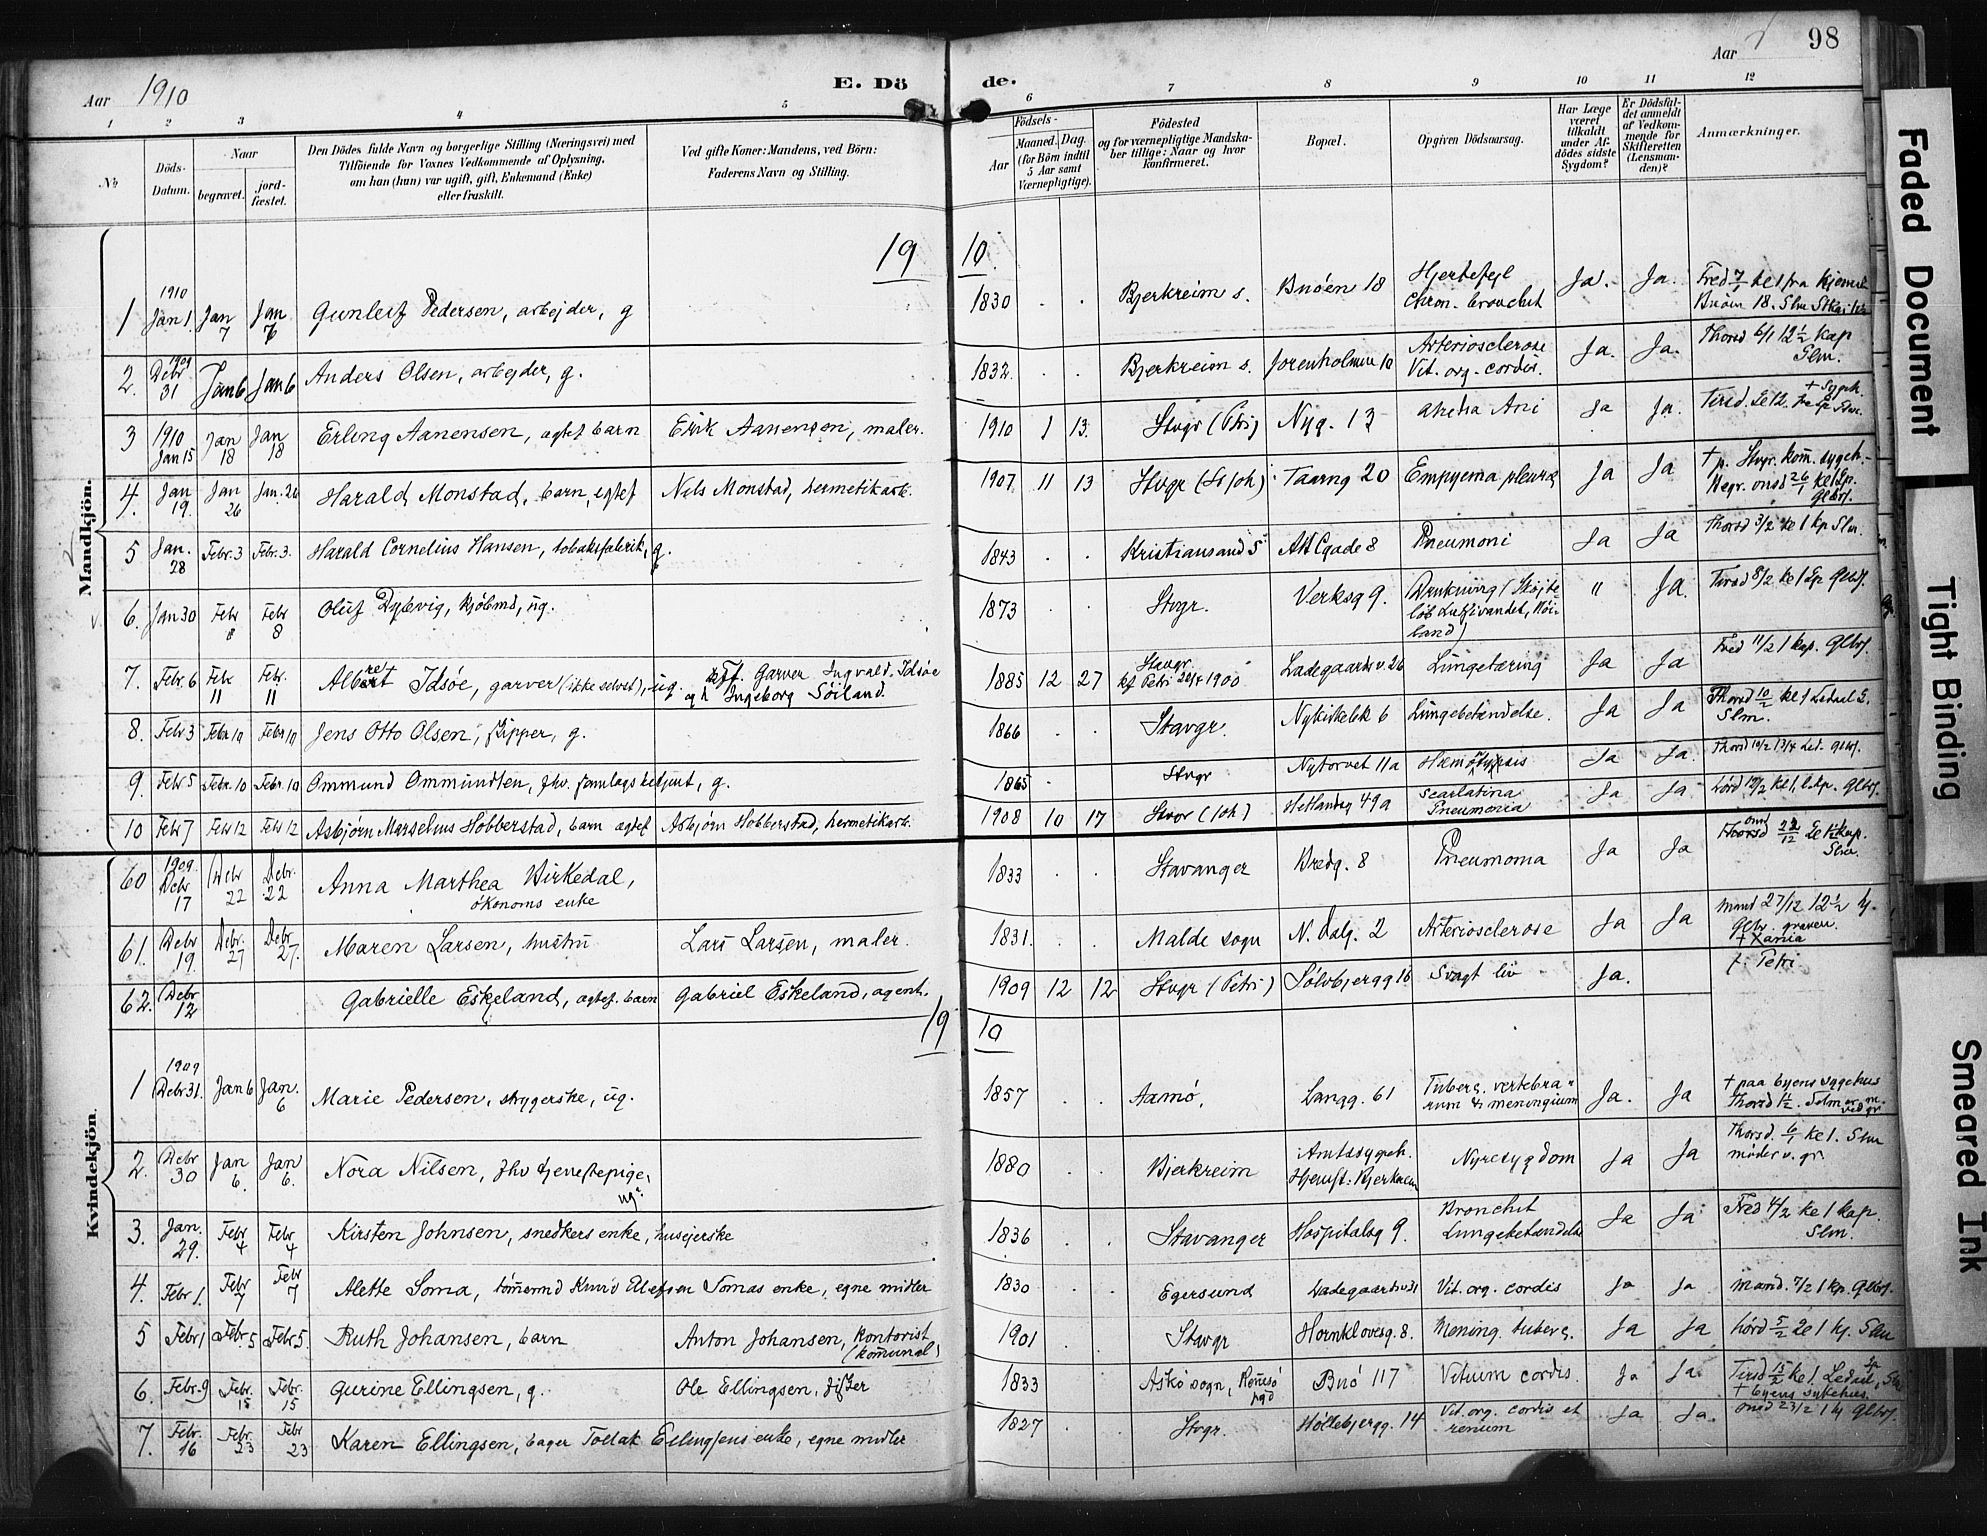 Aar 1910
E. Dö de.
Aar
98
1 2 3 4 5 6 7 8 9 10 11 12
No
Döds-Datum.
Naar begravet. jordfæstet.
Den Dödes fulde Navn og borgerlige Stilling (Næringsvei) med
Tilföiende for Voxnes Vedkommende af Oplysning,
om han (hun) var ugift, gift, Enkemand (Enke)
eller fraskilt.
Ved gifte Koner: Mandens, ved Börn:
Faderens Navn og Stilling.
Födsels-
Aar Maaned. Dag.
(for Börn indtil
5 Aar samt
Værnepligtige).
Födested
og for værnepligtige Mandska-
ber tillige: Naar og hvor
konfirmeret.
Bopæl.
Opgiven Dödsaarsag.
Har Læge
været
tilkaldt
under Af-
dödes sidste
Sygdom?
Er Dödsfal-
det anmeldt
af Vedkom-
mende for
Skifteretten
(Lensman-
den)?
Anmærkninger.
Mandkjön.
19 10.
1 1910 Jan 1 Jan 7 Jan 7 Gunleif Pedersen, arbejder, g 1830 . . Bjerkreim s. Buöen 18 Hjertefejl Chron. bronchit Ja. Ja. Fred 7/1 kl 1 fra hjemmet Buöen 18.
2. 1909 Debr 31 Jan 6 Jan 6 Anders Olsen, arbejder, g. 1832. . . Bjerkreim s. Jorenholmen 10 Arteriosclerose Vit. org. cordis. Ja. Ja. Thorsd 6/1 12½ kap Slm.
3 1910 Jan 15 Jan 18 Jan 18 Erling Aanensen, ægtef barn Erik Aanensen, maler. 1910 1 13. Stvgr (Petri) Nyg. 13 Atresia Ani Ja Ja.
4. Jan 19. Jan 26 Jan. 26 Harald Monstad, barn, egtef Nils Monstad, hermetikarb. 1907 11 13 Stvgr (St Joh) Taarng 20 Empyema pleuræ Ja Ja † p. Stvgr. kom. sygeh. Begr. onsd 26/1 kl 1 Sp. Glbrf.
5 Jan. 28 Febr. 3 Febr. 3. Harald Cornelius Hansen, tobaksfabrik, g. 1843 . . Kristiansand S. Alx Cgade 8 Pneumoni Ja Ja Thorsd 3/2 kl 1 kp Slm.
6. Jan 30 Febr 8 Febr 8 Oluf Dybvig, kjöbmd, ug. 1873 . . Stvgr. Verksg 9. " Ja. Tirsd 8/2 kl 1 Sp Glbrf.
7. Febr. 6 Febr 11 Febr. 11 Albret Idsöe, garver (ikke selvst), ug. Garver Ingvald Idsöe og h Ingeborg Söiland. 1885 12 27 Stavgr. kf Petri 1900 Ladegaardsv. 26 Lungetæring Ja Ja Fred 11/2 1 kap. Glbrf.
8. Febr 3 Febr 10 Febr 10 Jens Otto Olsen, skipper, g. 1866 Stavgr. Nykirkebk 6 Lungebetændelse. Ja Ja Thorsd 10/2 kl 1 Ledaal S. Slm.
9. Febr 5 Febr. 10 Febr. 10 Ommund Ommundsen, fhv. samlagsbetjent, g. 1865 . Stvgr Nytorvet 11a Hæmoptysis Ja Ja. Thorsd 10/2 1 3/4 Led. Glbrf.
10 Febr 7 Febr 12 Febr 12 Asbjörn Marselius Hobberstad, barn ægtef Asbjörn Hobberstad, hermetikarb. 1908 10 17 Stvgr (Joh) Hetlandsg 49a Scarlatina Pneumonia Ja Ja Lörd 12/2 kl 1, l. kp. Glbrf.
Kvindekjön.
60 1909 Debr 17 Debr 22 Debr. 22 Anna Marthea Birkedal, ökonoms enke 1833 . . Stavanger Bredg. 8 Pneumonia Ja Ja onsd 22/12 kap. Slm.
61. Debr 19. Debr. 27 Debr 27. Maren Larsen, hustru Lars Larsen, maler. 1831. . . Malde sogn N. Dalg. 2 Arteriosclerose Ja Ja Mand 27/12 12½ hj. Glbr. graven. † Xania
62. Debr 12 Gabrielle Eskeland, ægtef. barn Gabriel Eskeland, agent. 1909 12 12 Stvgr (Petri) Sölvbjergg 16 Svagt liv Ja. f. Petri
19 10
1 1909 Debr 31. Jan 6 Jan. 6 Marie Pedersen, strygerske, ug. 1857 . . Aamö, Langg. 61 Tuberc. vertebrarum & meningium Ja. Ja † paa byens sygehus
2. Debr 30 Jan 6. Jan 6. Nora Nilsen, fhv tjenestepige, ug. 1880 . . Bjerkreim Amtssygeh. Hjemst: Bjerkreim Nyresygdom Ja Ja Thorsd. 6/1 kl 1. Slm möder v. gr.
3. Jan. 29. Febr 4 Febr 4 Kirsten Johnsen, snedkers enke, husejerske 1836 . . Stavanger Hospitalsg 9. Bronchit Lungebetændelse Ja Ja Fred 4/2 kl 1 kap. Slm.
4. Febr 1. Febr 7 Febr 7 Alette Soma, tömermd Knud Olefsen Somas enke, egne midler 1830 . Egersund Ladegaardsv 31 Vit. org. cordis Ja Ja Mand. 7/2 1 kp. Glbrf.
5 Febr 1 Febr. 5 Febr 5. Ruth Johansen, barn Anton Johansen, kontorist (kommunal) 1901 . Stavgr Hornklovesg. 8. Mening. tuberc. Ja Ja Lörd 5/2 2e 1 kj. Slm
6. Febr. 9 Febr. 15 Febr. 15 Gurine Ellingsen, g. Ole Ellingsen, fisker 1833 Askö sogn, Buö 117 Vitium cordis. Ja Ja. Tirsd 15/2 kl 1. Ledaal, † byens sykehus.
7. Febr. 16 Febr. 23 Febr 23 Karen Ellingsen, bager Tollak Ellingsens enke, egne midler 1827 . Stvgr. Höllebjergg. 14 Vit. org. cordis et renum Ja Ja. onsd 23/2 1 hj Glbrf.
Faded Document
Tight Binding
Smeared Ink